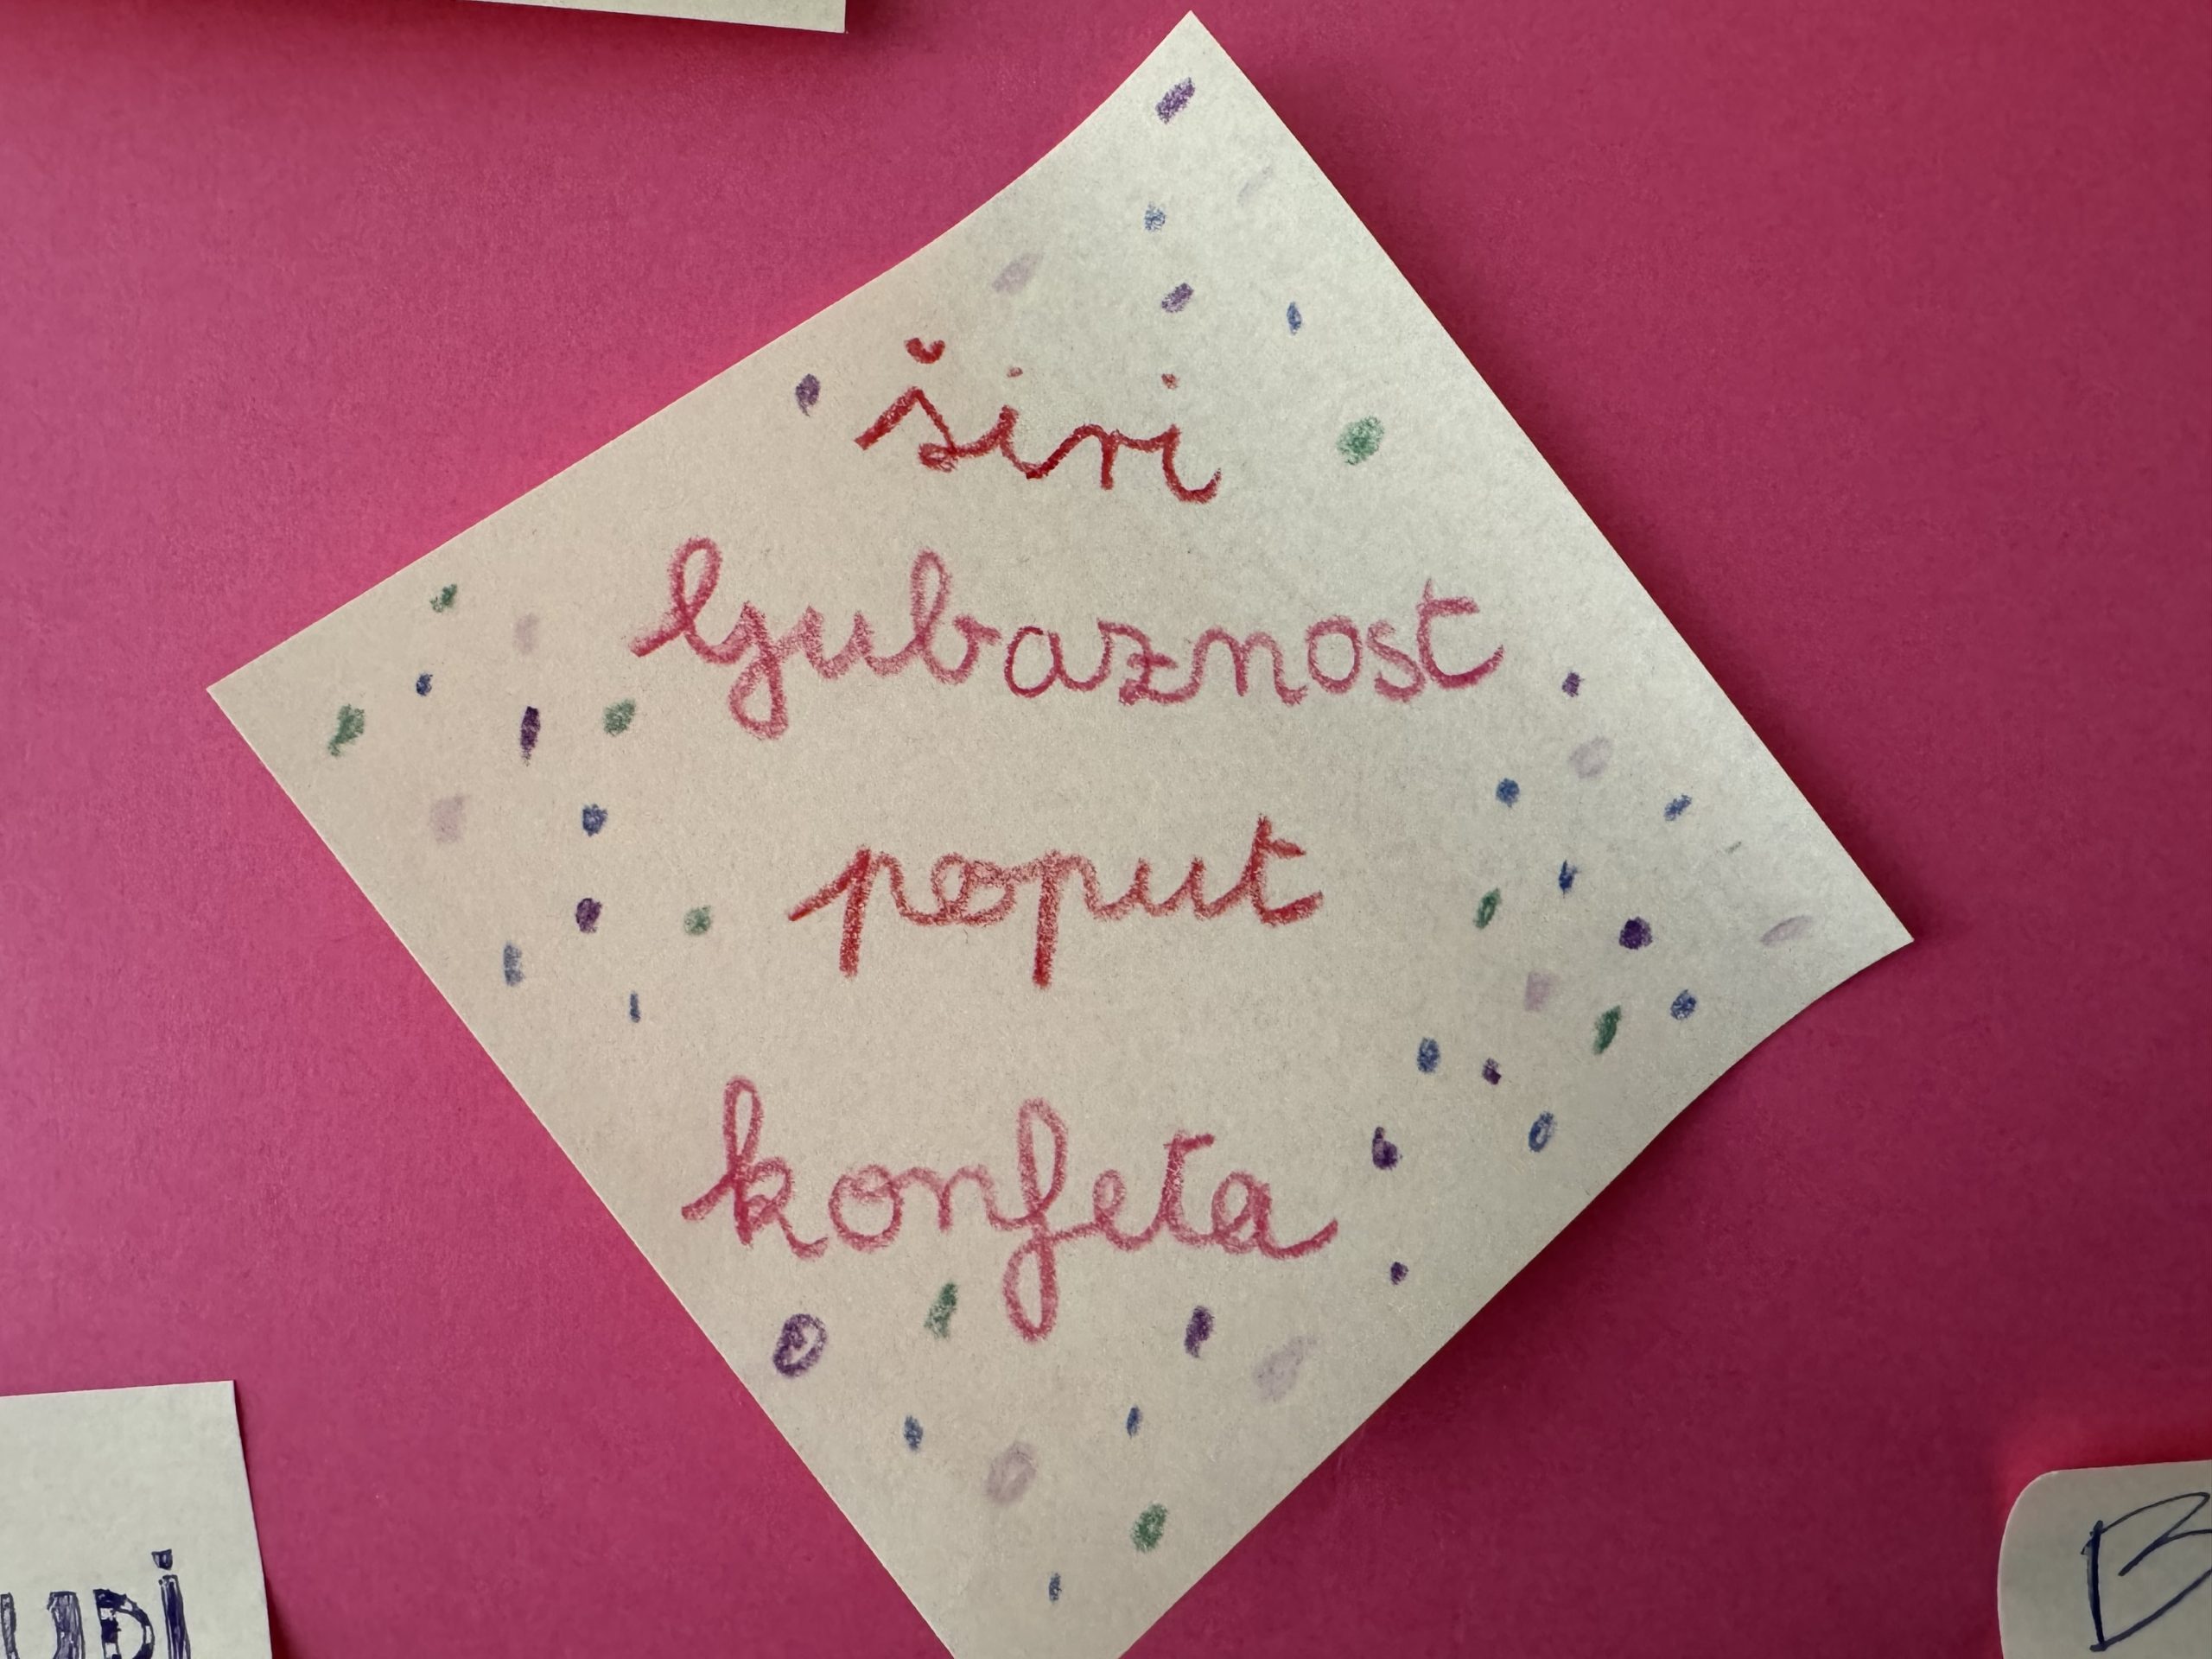 širi
ljubaznost
poput
konfeta
UDI
B